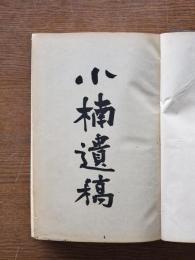 小楠遺稿